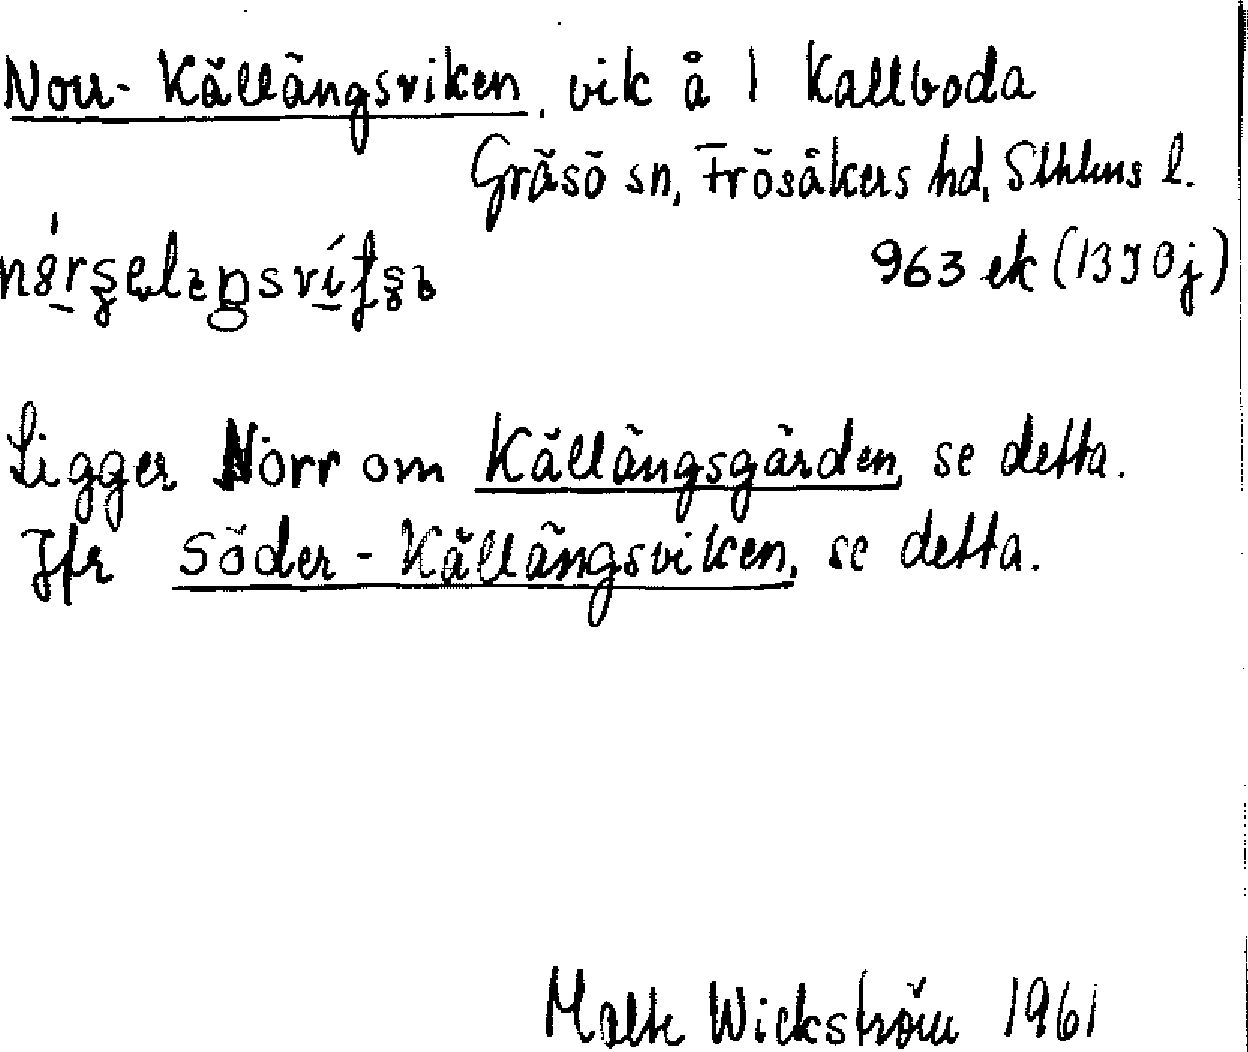 Norr-Källängsviken, vik å 1 Kallboda
Gräsö sn, Frösåkers hd, Sthlms l.
963 ek (13 I 0j)
Ligger Norr om Källängsgärden, se detta.
Jfr Söder-Källängsviken, se detta.
Malte Wickström 1961